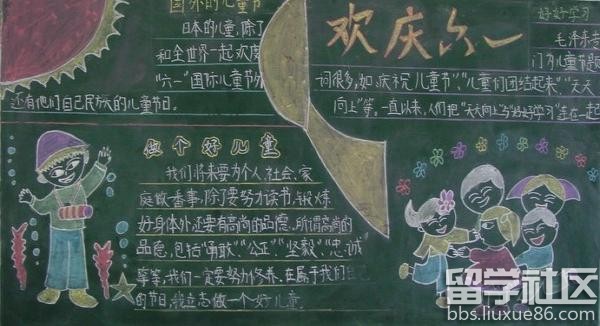 国外的儿童节
日本的儿童,除了
和全世界一起欢度
“六一”国际儿童节外
还有他们自己民族的儿童节日。
欢庆六一
好好学习
毛泽东
门为儿童节
词很多,如“庆祝儿童节”、“儿童们团结起来”、“天天
向上”等。一直以来,人们把“天天向上”与“好好学习”连在一起
做个好儿童
我们将来要为个人、社会、家
庭做番事,除了要努力读书,锻炼
好身体外还要有高尚的品德。所谓高尚的
品德,包括“勇敢”“公正”“坚毅”“忠诚”
等,我们一定要努力修养。在属于我们自己
的节日,我立志做一个好儿童。
留学社区
bbs.liuxue86.com